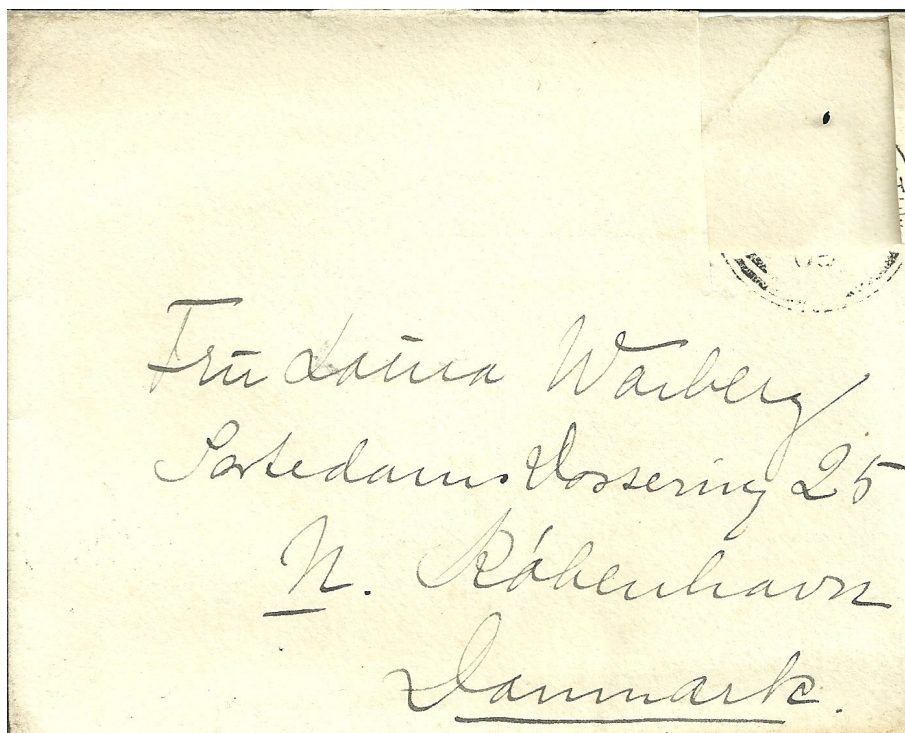 Fru Laura Warberg
Sortedams Dossering 25
N. København
Danmark.